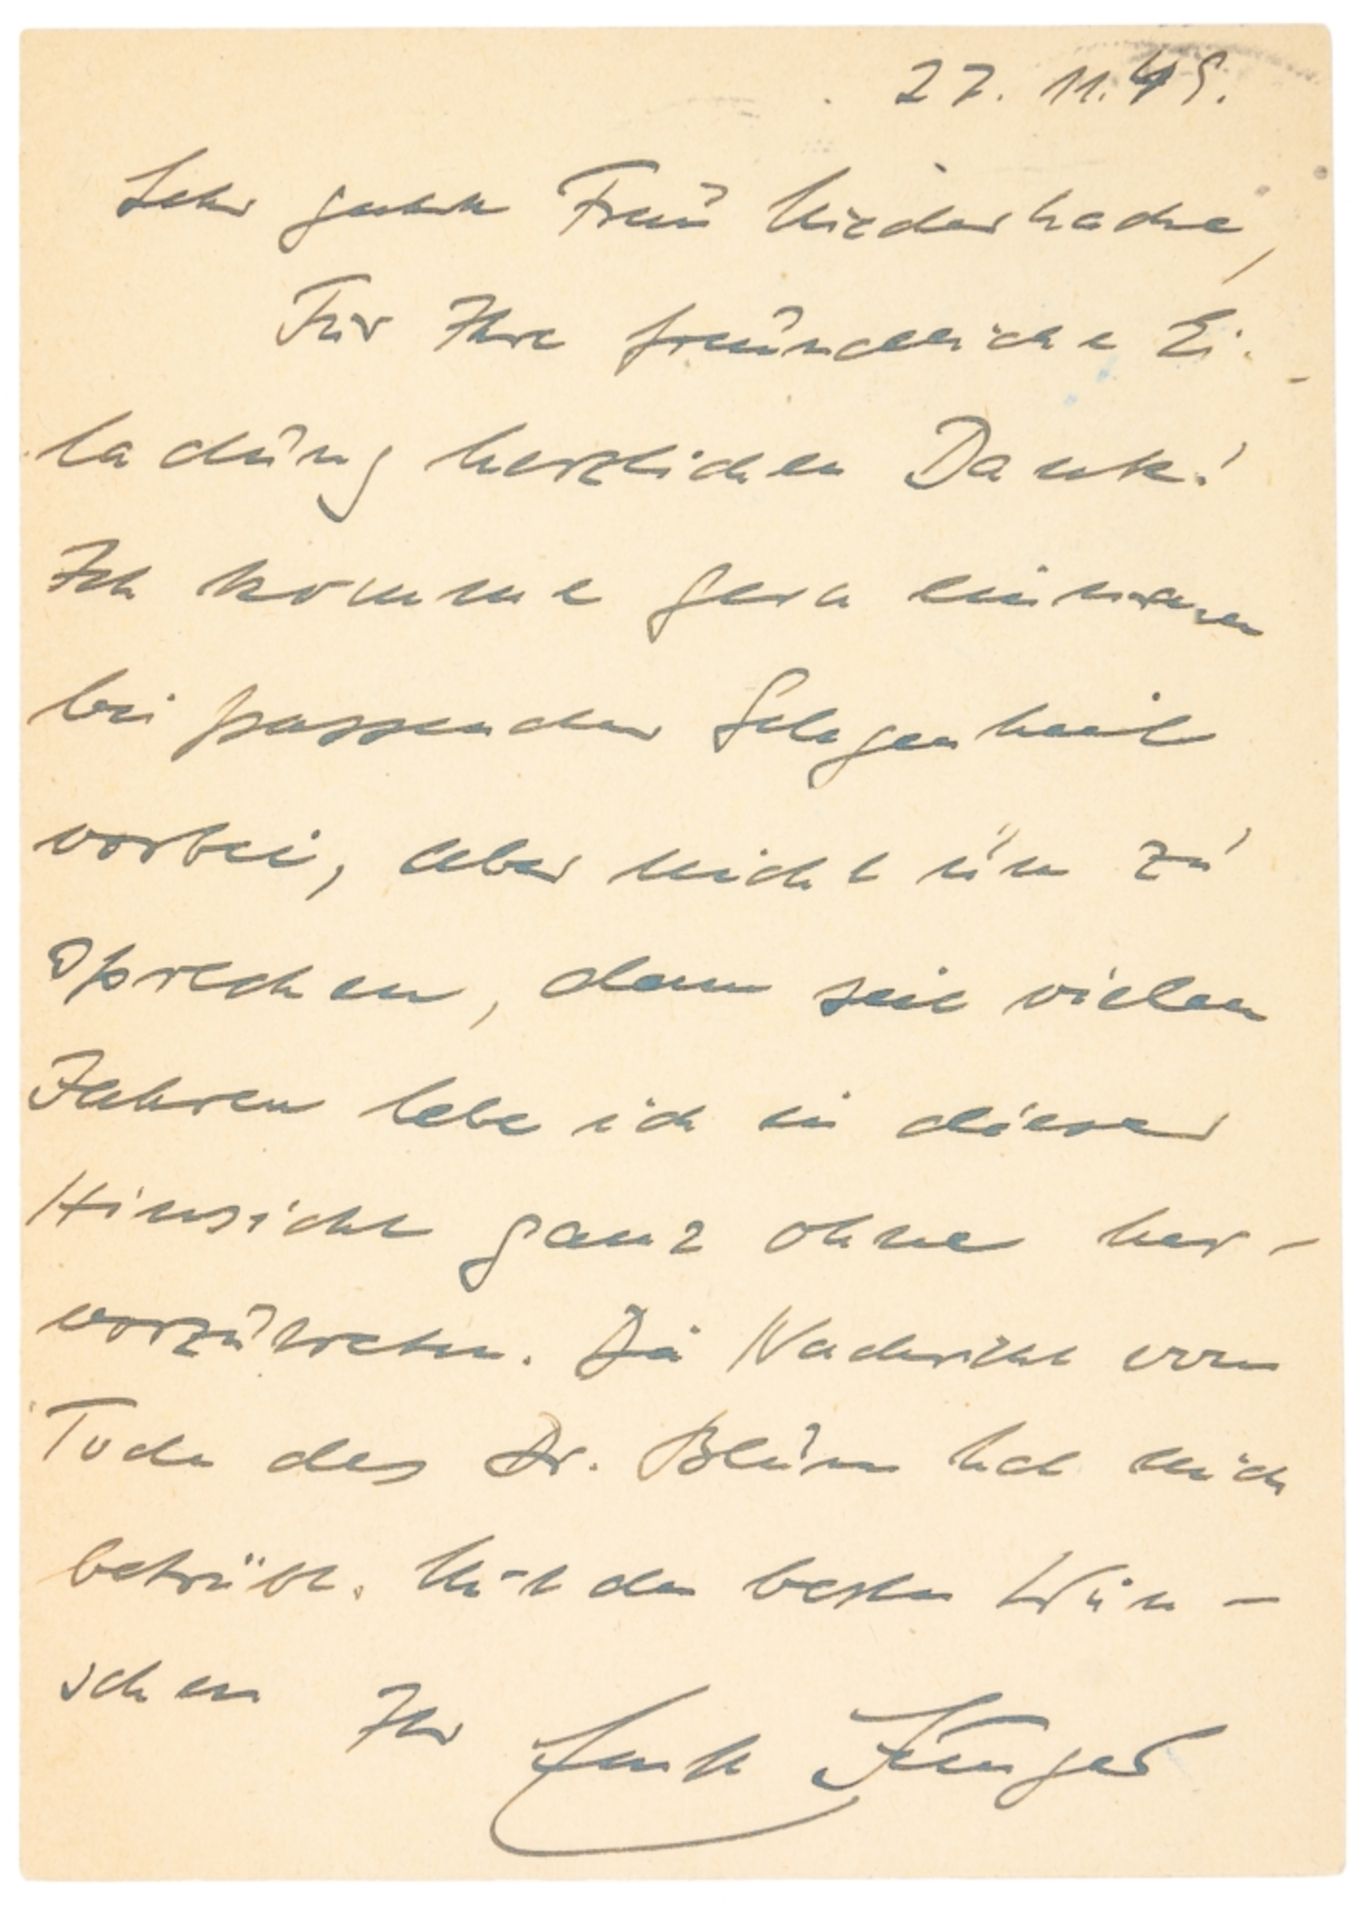 27. 11. 45.
Sehr geehrte Frau Niederhacke,
Für Ihre freundliche Ei-
ladung herzlichen Dank!
Ich komme gern einmal
bei passender Gelegenheit
vorbei, aber nicht um zu
sprechen, denn seit vielen
Jahren lebe ich in dieser
Hinsicht ganz ohne her-
vorzutreten. Die Nachricht vom
Tode des Dr. Blum hat mich
betrübt. Mit den besten Wün-
schen Ihr Ernst Jünger